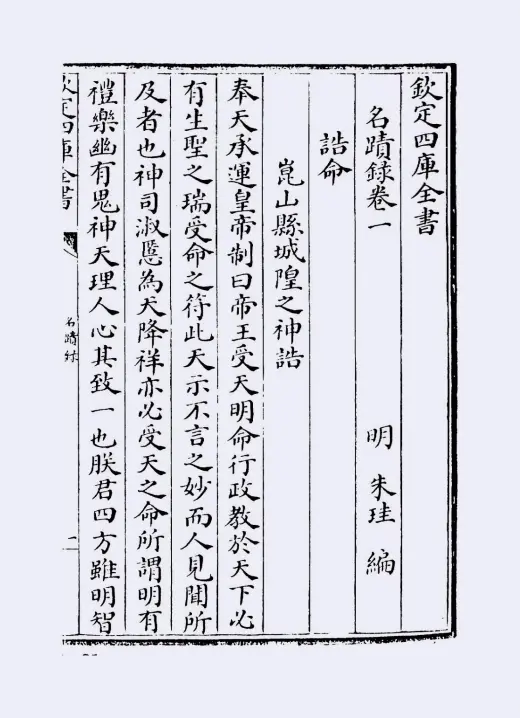 欽定四庫全書
名蹟錄卷一
明 朱珪 編
誥命
崑山縣城隍之神誥
奉天承運皇帝制曰帝王受天明命行政教於天下必
有生聖之瑞受命之符此天示不言之妙而人見聞所
及者也神司淑慝為天降祥亦必受天之命所謂明有
禮樂幽有鬼神天理人心其致一也朕君四方雖明智
欽定四庫全書
名蹟錄